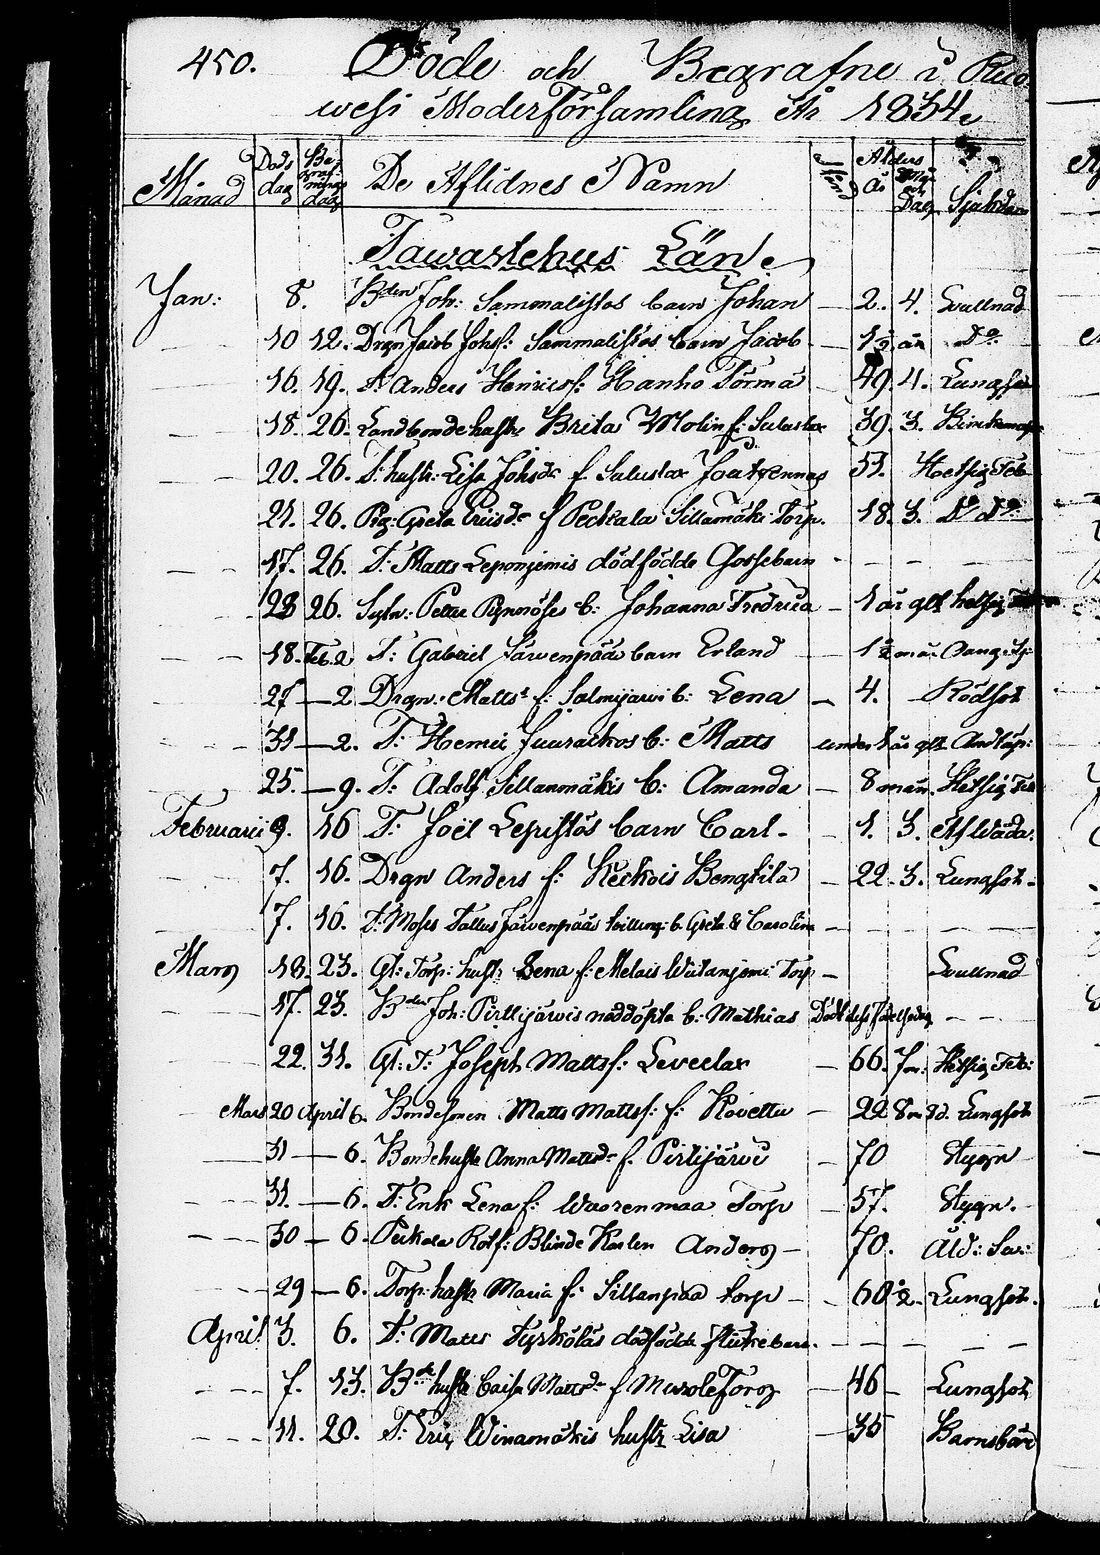 450. Döde och Begrafne i Ruo
wesi Moderförsamling År 1834.
Månad Döds dag Begrafnings dag De Aflidnes Namn Ålders År Dag Sjukdom
Tawastehus Län.
Jan: 8. Bden Joh: Sammalistos barn Johan — 2. 4. Svullnad
10 12. Drgn Jacob Johsf: Sammalistos barn Jacob - Do
16. 19. Anders Henricsf: Hanho Torma — 49. 4. Lungsot
18. 26. Landbonde hustr Brita Molin f: 39. 3.
20. 26. T: hustr: Lisa Johsdr f. 53. Hetsig Feb
21. 26. Pig: Greta Ericsdr f Peckala Sillamäki Torp. 18. 3. Do Do
17. 26. T: Matts Leponjemis dödfödde Gossebarn - - - -
23 26. b: Johanna Fredrica — 1 år gl: hetsig
18. Feb. 2 T: Gabriel Järwenpääs barn Erland
27 — 2 Drgn: Matts f: Salmijärwi b: Lena — 4. Rödsot
31 — 2. T: Henric b: Matts under 1 år gl: Andtäp:
25. — 9. T: Adolf Sillanmäkis b: Amanda 8 mån. Hetsig Feb
Februarii 9. 16 T: Joël Lepistös barn Carl - — 1. 3. Af Wåda.
7. 16. Drgn Anders f: Keckois Bengtilä — 22. 3. Lungsot -
7. 16. T: Moses Tallus Järwenpääs twilling: b. Greta & Carolina
Mars 18. 23. Gl: Torp: hustr Lena f: Melais Wiitanjemi Torp — Svullnad
17. 23. Bden Joh: Pirttijärwis nöddöpta b: Mathias - -
22. 31. Gl: T: Joseph Mattsf: Leveelax — 66. Hetsig Feb:
Mars 20 April 6. Bondesonen Matts Mattsf: f: Kovettu — 22 8m 8d. Lungsot
31 — 6. Bondehustr Anna Mattsdr f. Pirtijärwi — 70 Stygn
31. — 6. T: Enk Lena f: Wuorenmaa Torp — 57. Stygn.
30 — 6. Pekala Rotf: Blinde Karlen Anders — 70. Åld:
29 — 6. Torp: hustr Maria f: Sillanpää torp — 60 2. Lungsot.
April 3. 6. T: Matts Tyrkoläs dödfödde flickebarn. - - - -
7. 13. Bde hustr Caisa Mattsdr f Muroletorp — 46 Lungsot
11. 20. T: Eric Winamäkis hustr Lisa — 35 Barnsbörd